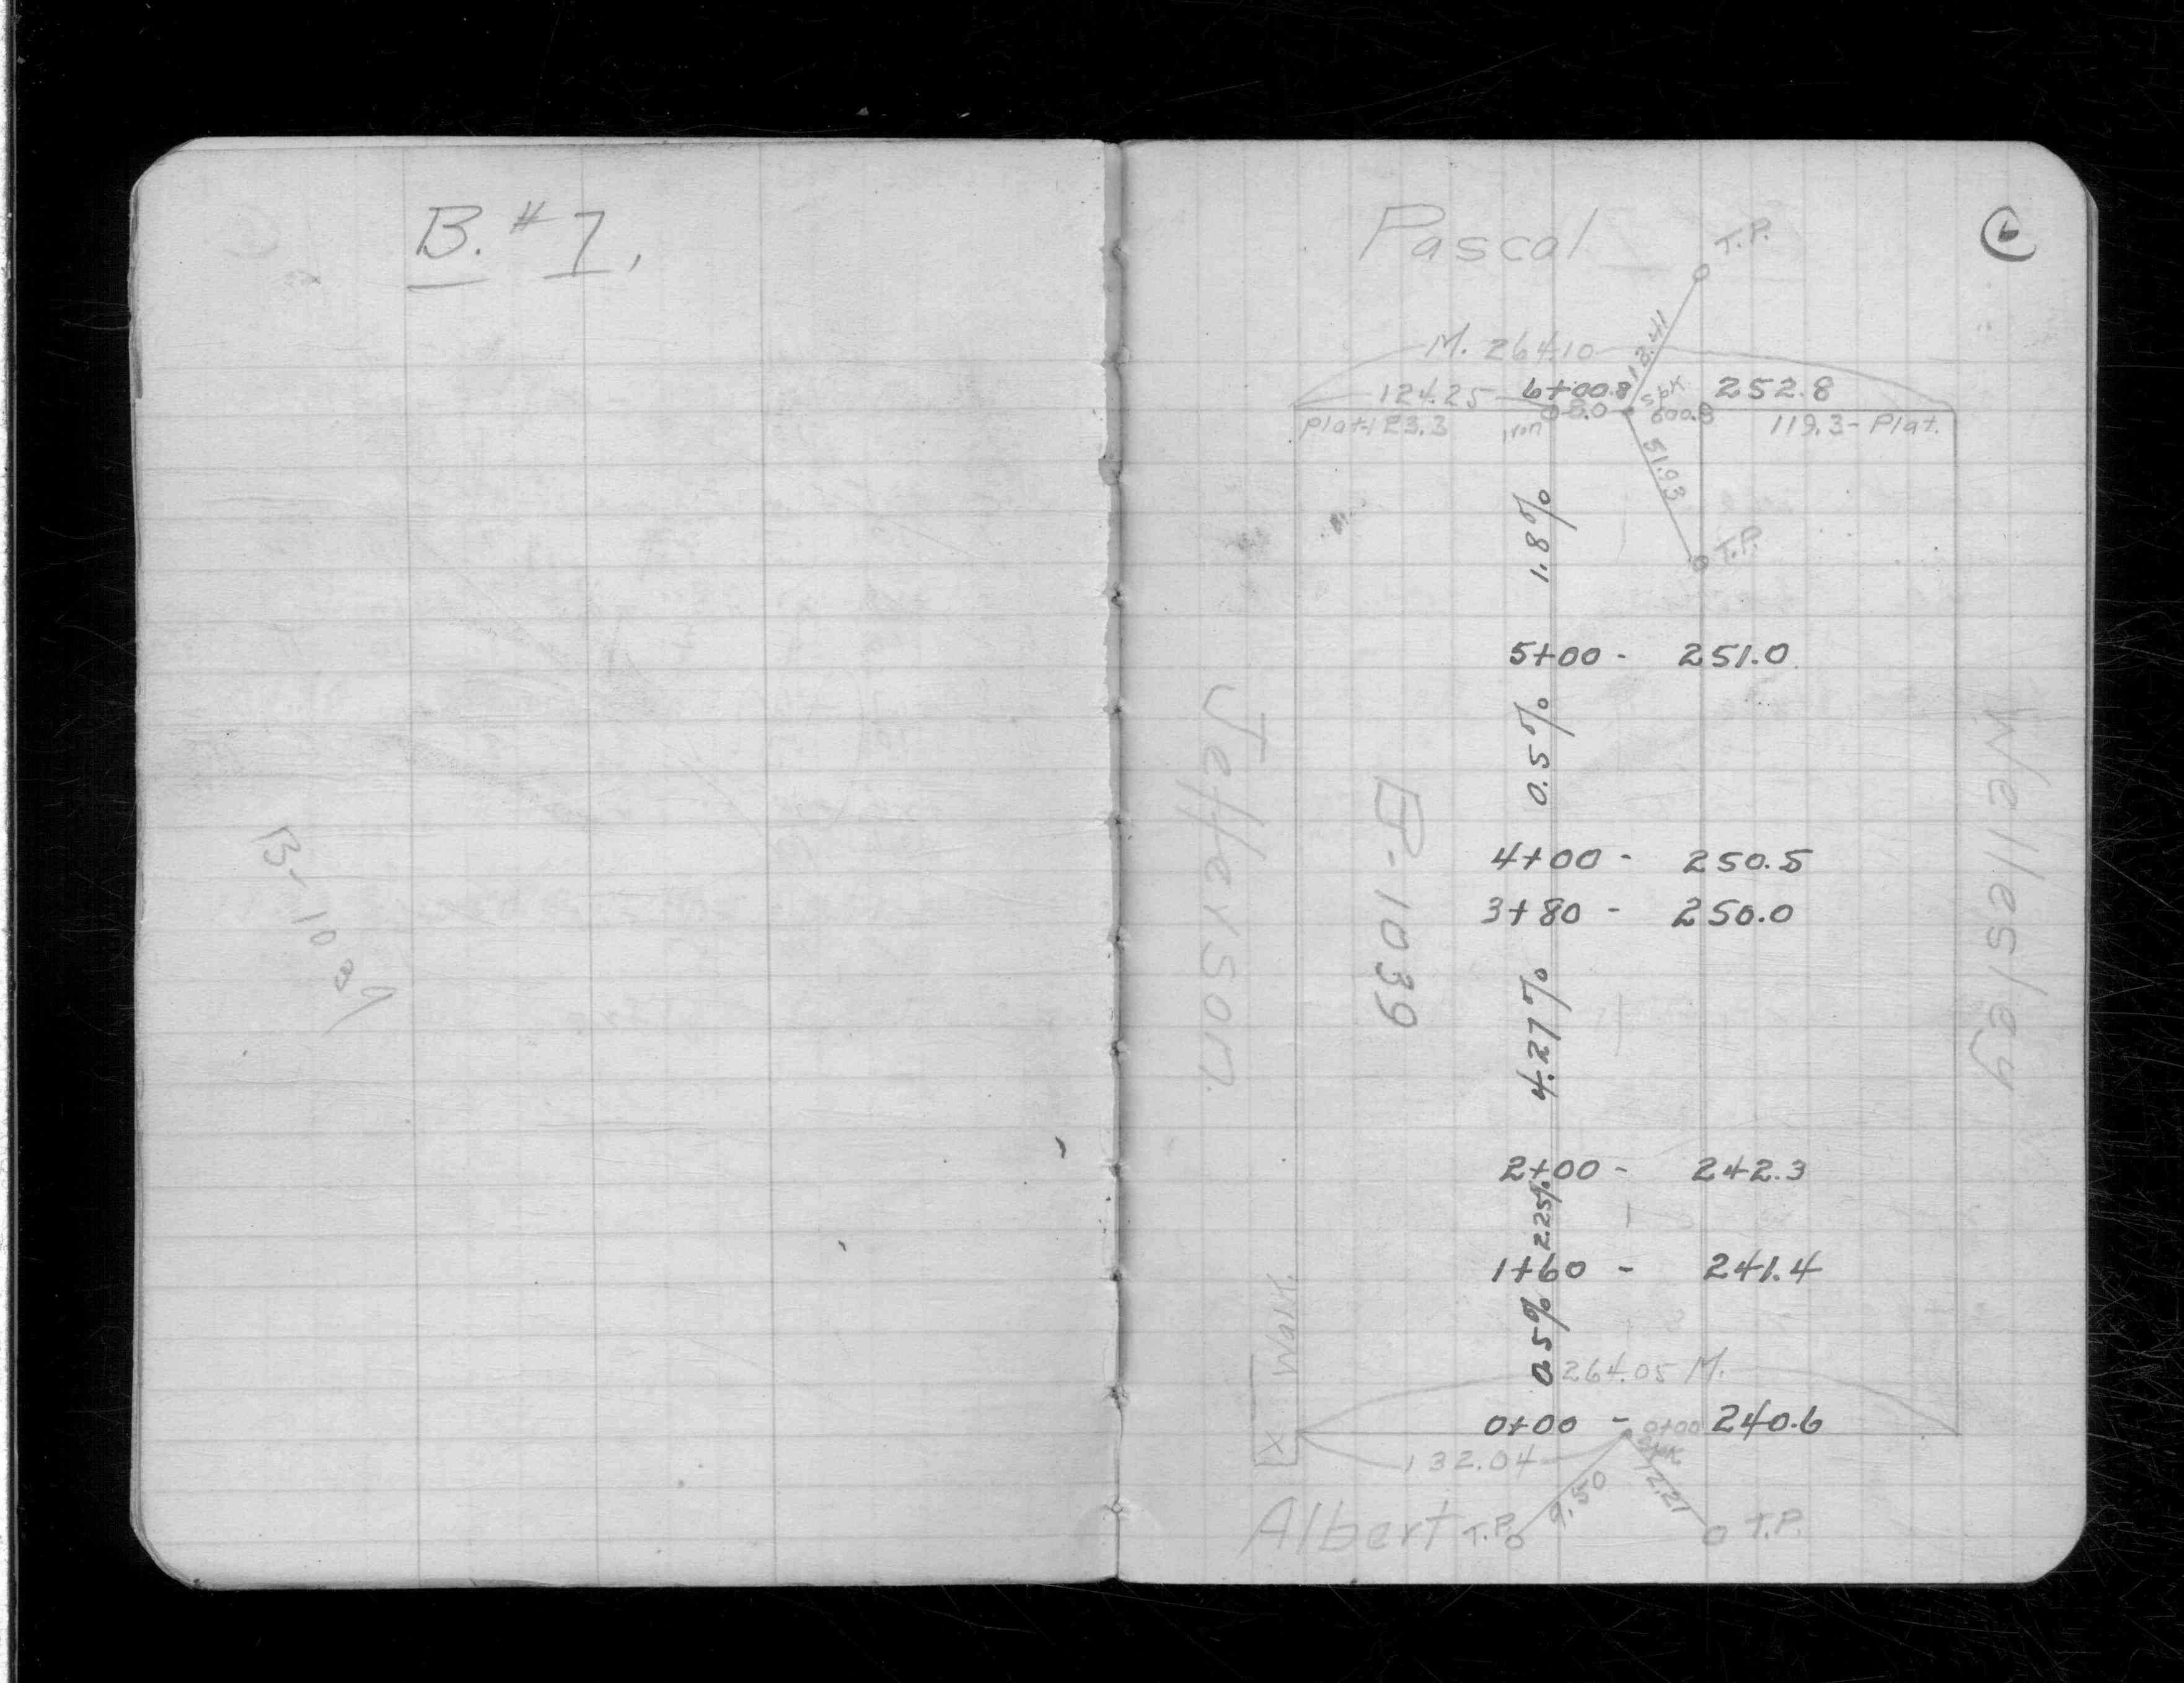 B. #7.
B-1039
6
Pascal
T.P.
12.41
M. 264.10
124.25
6+00.8
spk
252.8
8.0
600.8
Plat-123.3
iron
119.3-Plat.
51.93
T.P.
1.8%
5+00 - 251.0
0.5%
Jefferson.
Wellesley
B-1039
4+00 - 250.5
3+80 - 250.0
4.27%
2+00 - 242.3
2.25%
1+60 - 241.4
0.5%
Walk.
264.05 M.
0+00 - 240.6
0+00
spk.
X
132.04
9.50
12.21
Albert
T.P.
T.P.